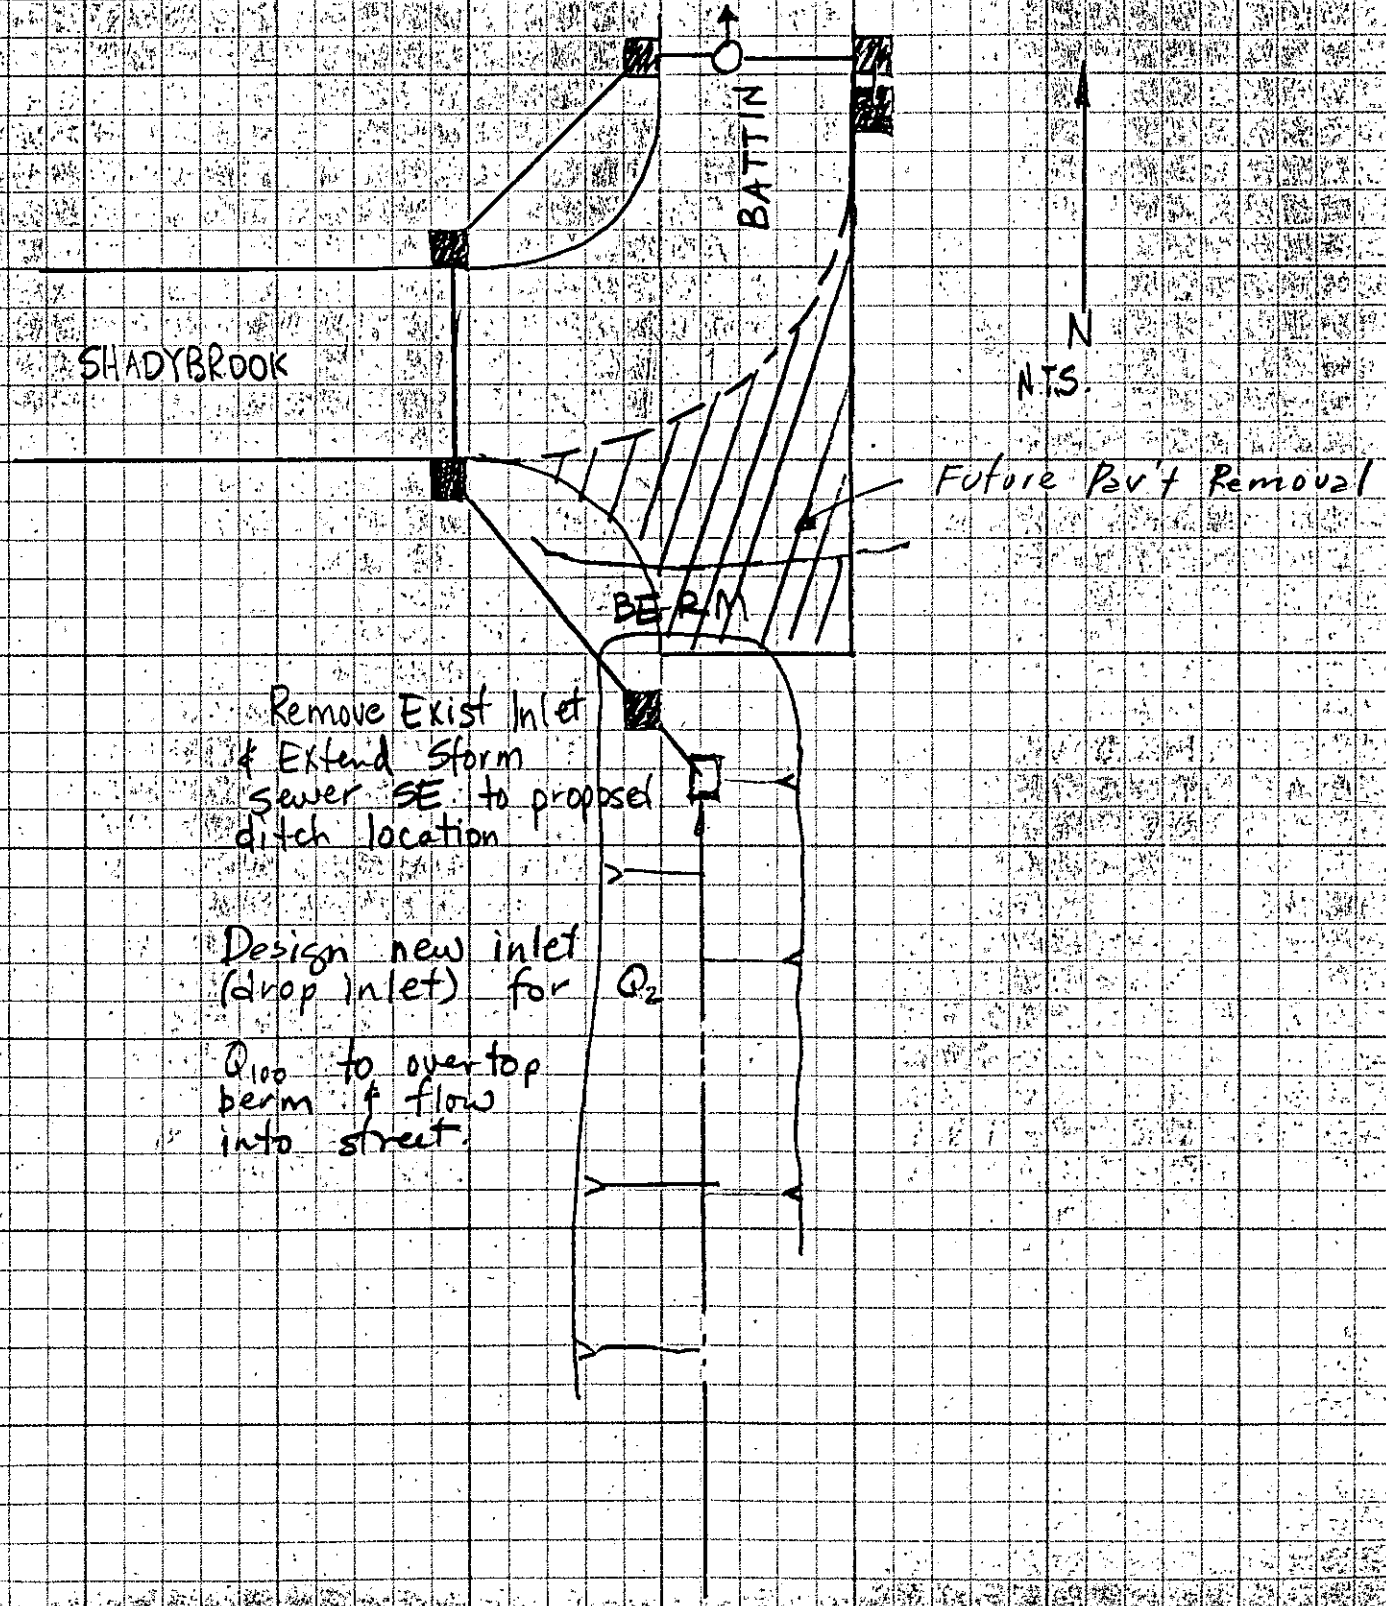 BATTIN
N
N.T.S.
SHADYBROOK
Future Pav't Removal
BERM
Remove Exist Inlet
& Extend Storm
sewer SE to proposed
ditch location
Design new inlet
(drop inlet) for Q2
Q100 to overtop
berm & flow
into street.